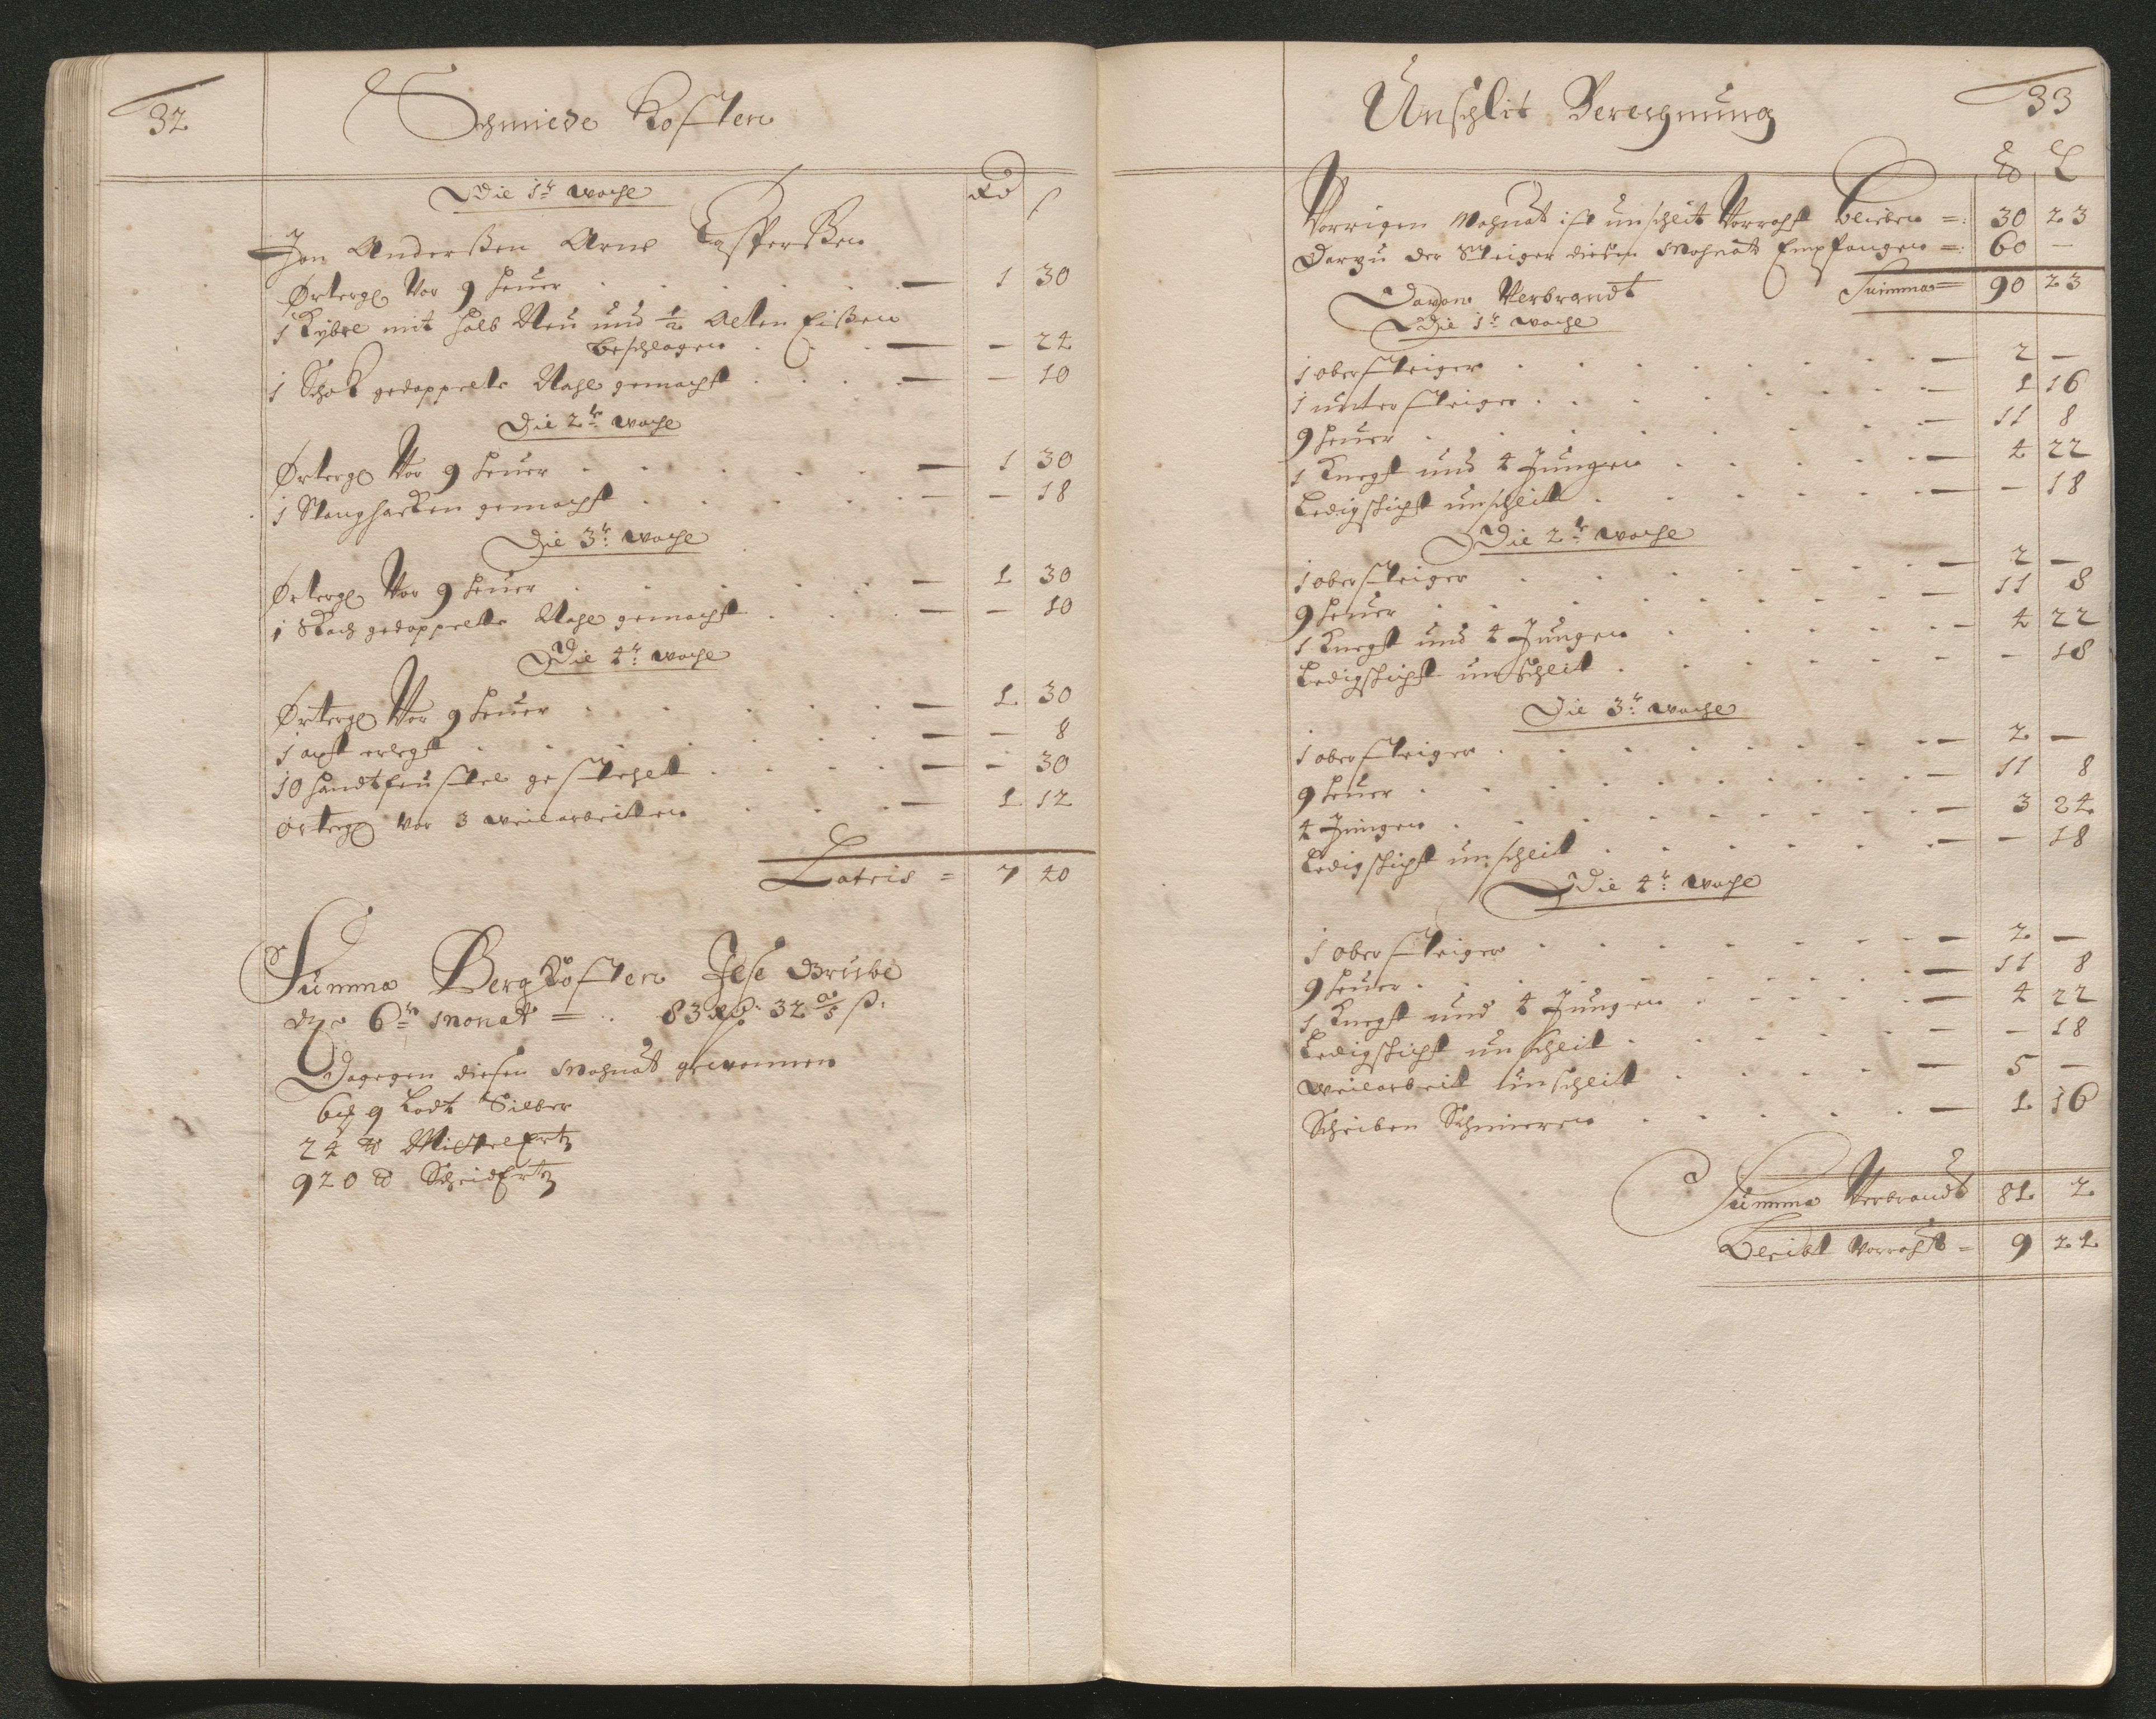 32
Schmiede Kosten
Rd ß
Die 1te woche
Jon Anderßen Arne Casperßen
Örterg Vor 9 heuer — 1 30
1 Kybel mit halb Neu und 1/2 Alten Eißen
beschlagen — - 24
1 Schok gedoppelte Nagel gemacht — - 10
Die 2te woche
Örterg Vor 9 heuer — 1 30
1 Stanghacken gemacht — - 18
Die 3te woche
Örterg Vor 9 heuer — 1 30
1 Skock gedoppelte Nagel gemacht — - 10
Die 4te woche
Örterg Vor 9 heuer — 1 30
1 axt erlegt — - 8
10 handtfeustel gestehelt — - 30
örterg vor 3 weilarbeiten — 1 12
Lateris = 7 40
Summa Bergkosten Grube
6te Monat = 83 32 ß:
Dagegen diesen Mohnat gewonnen
9 Lodt Silber
24 ℔ Mittelertz
920 ℔ Scheidertz
33
Unschlit Berechnung
℔ L
Vorrigen Mohnat ist unschlit Vorraht blieben = 30 23
Darzu der Steiger diesen Mohnat Empfangen = 60 —
Summa = 90 23
Davon Verbrandt
Die 1te woche
1 obersteiger — 2 —
1 untersteiger — 1 16
9 heuer — 11 8
1 Knecht und 4 Jungen — 4 22
Ledigschicht unschlit — - 18
Die 2te woche
1 obersteiger — 2 —
9 heuer — 11 8
1 Knecht und 4 Jungen — 4 22
Ledigschicht unschlit — - 18
Die 3te woche
1 obersteiger — 2 —
9 heuer — 11 8
4 Jungen — 3 24
Ledigschicht unschlit — - 18
Die 4te woche
1 obersteiger — 2 —
9 heuer — 11 8
1 Knecht und 4 Jungen — 4 22
Ledigschicht unschlit — - 18
weilarbeit unschlit — 5 —
Scheiben Schmieren — 1 16
Summa Verbrandt 81 2
Bleibt Vorraht = 9 21